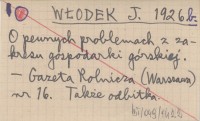 WŁODEK J. 1926 b.
O pewnych problemach z za-
kresu gospodarki górskiej.
— Gazeta Rolnicza (Warszawa)
nr 16. Także odbitka.